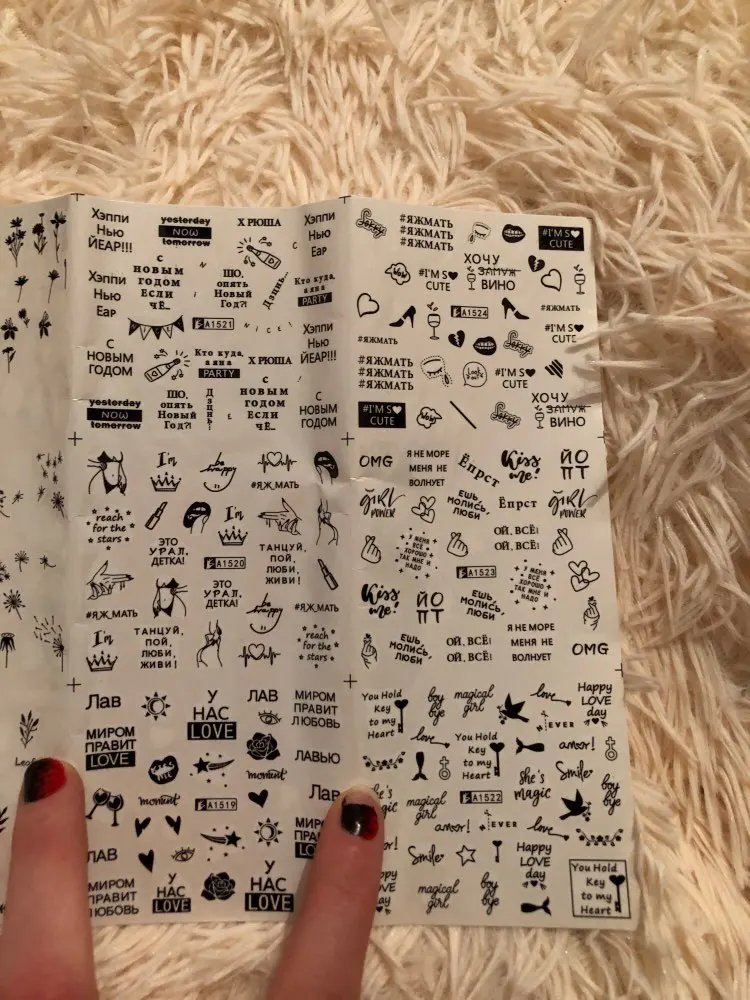 Хэппи
Нью
ЙЕАР!!!
yesterday
NOW
tomorrow
Х РЮША
Хэппи
Нью
Еар
С
НОВЫМ
ГОДОМ
ЕСЛИ
ЧЁ...
ШО,
опять
Новый
Год?!
Дзинь...
Кто куда,
а я на
PARTY
Хэппи
Нью
Еар
A1521
NICE
Хэппи
Нью
ЙЕАР!!!
С
НОВЫМ
ГОДОМ
Кто куда,
а я на
PARTY
Х РЮША
yesterday
NOW
tomorrow
ШО,
опять
Новый
Год?!
С
НОВЫМ
ГОДОМ
ЕСЛИ
ЧЁ...
С
НОВЫМ
ГОДОМ
Sorry
#ЯЖМАТЬ
#ЯЖМАТЬ
#ЯЖМАТЬ
#I'M S
CUTE
#I'M S
CUTE
ХОЧУ
ЗАМУЖ
ВИНО
A1524
#ЯЖМАТЬ
#I'M S
CUTE
#ЯЖМАТЬ
Sorry
#ЯЖМАТЬ
#ЯЖМАТЬ
#ЯЖМАТЬ
#I'M S
CUTE
#I'M S
CUTE
Sorry
ХОЧУ
ЗАМУЖ
ВИНО
I'm
be
happy
#ЯЖ_МАТЬ
reach
for the
stars
I'm
ЭТО
УРАЛ,
ДЕТКА!
A1520
ТАНЦУЙ,
ПОЙ,
ЛЮБИ,
ЖИВИ!
ЭТО
УРАЛ,
ДЕТКА!
#ЯЖ_МАТЬ
be
happy
#ЯЖ_МАТЬ
I'm
ТАНЦУЙ,
ПОЙ,
ЛЮБИ,
ЖИВИ!
reach
for the
stars
OMG
Я НЕ МОРЕ
МЕНЯ НЕ
ВОЛНУЕТ
Ёпрст
Kiss
me!
ЙО
ПТ
GIRL
POWER
ЕШЬ,
МОЛИСЬ,
ЛЮБИ
Ёпрст
GIRL
POWER
У МЕНЯ
ВСЁ
ХОРОШО
ТАК МНЕ И
НАДО
ОЙ, ВСЁ!
ОЙ, ВСЁ!
A1523
У МЕНЯ
ВСЁ
ХОРОШО
ТАК МНЕ И
НАДО
Kiss
me!
ЙО
ПТ
ЕШЬ,
МОЛИСЬ,
ЛЮБИ
ЕШЬ,
МОЛИСЬ,
ЛЮБИ
ОЙ, ВСЁ!
ОЙ, ВСЁ!
Я НЕ МОРЕ
МЕНЯ НЕ
ВОЛНУЕТ
OMG
Лав
У
НАС
LOVE
ЛАВ
МИРОМ
ПРАВИТ
ЛЮБОВЬ
МИРОМ
ПРАВИТ
LOVE
ЛАВЬЮ
moment
moment
A1519
Лав
ЛАВ
МИРОМ
ПРАВИТ
ЛЮБОВЬ
У
НАС
LOVE
У
НАС
LOVE
You Hold
Key
to my
Heart
boy
bye
magical
girl
love
Happy
LOVE
day
EVER
love
You Hold
Key
to my
Heart
amor!
she's
magic
Smile
boy
bye
magical
girl
A1522
amor!
EVER
love
Smile
Happy
LOVE
day
magical
girl
boy
bye
You Hold
Key
to my
Heart